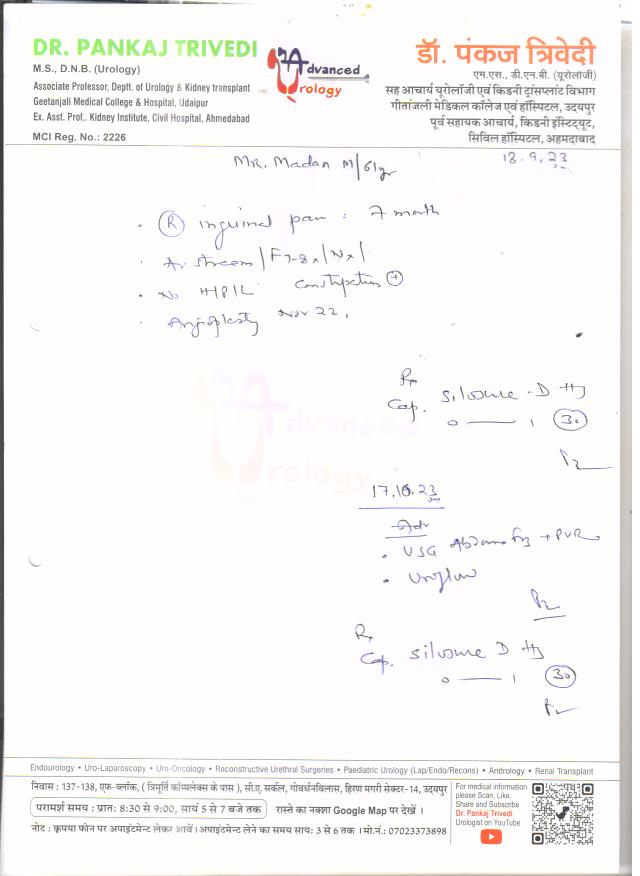 DR. PANKAJ TRIVEDI
M.S., D.N.B. (Urology)
Associate Professor, Deptt. of Urology & Kidney transplant
Geetanjali Medical College & Hospital, Udaipur
Ex. Asst. Prof.. Kidney Institute, Civil Hospital, Ahmedabad
MCI Reg. No.: 2226
Advanced
Urology
डॉ. पंकज त्रिवेदी
एम.एस., डी.एन.बी. (यूरोलॉजी)
सह आचार्य यूरोलॉजी एवं किडनी ट्रांसप्लांट विभाग
गीतांजली मेडिकल कॉलेज एवं हॉस्पिटल, उदयपुर
पूर्व सहायक आचार्य, किडनी इंस्टिट्यूट,
सिविल हॉस्पिटल, अहमदाबाद
Mr. Madan M/61yr
13.9.23
(R) inguinal pain : 7 month
stream
No Constipation +
Angioplasty Nov 22,
Rx
Cap. Silosure-D
0 — 1 (30)
Advanced
Urology
17.10.23
Adv
USG Abdomen PVR
Uroflow
Rx
Cap. Silosure D
0 — 1 (30)
Endourology • Uro-Laparoscopy • Uro-Oncology • Reconstructive Urethral Surgeries • Paediatric Urology (Lap/Endo/Recons) • Andrology • Renal Transplant
निवास : 137-138, एफ-ब्लॉक, ( त्रिमूर्ति कॉम्पलेक्स के पास ), सी.ए. सर्कल, गोवर्धनविलास, हिरण मगरी सेक्टर-14, उदयपुर
परामर्श समय : प्रातः 8:30 से 9:00, सायं 5 से 7 बजे तक रास्ते का नक्शा Google Map पर देखें ।
नोट : कृपया फोन पर अपाइंटमेन्ट लेकर आवें। अपाइंटमेन्ट लेने का समय सायः 3 से 6 तक । मो.नं.: 07023373898
For medical information
please Scan, Like,
Share and Subscribe
Dr. Pankaj Trivedi
Urologist on YouTube